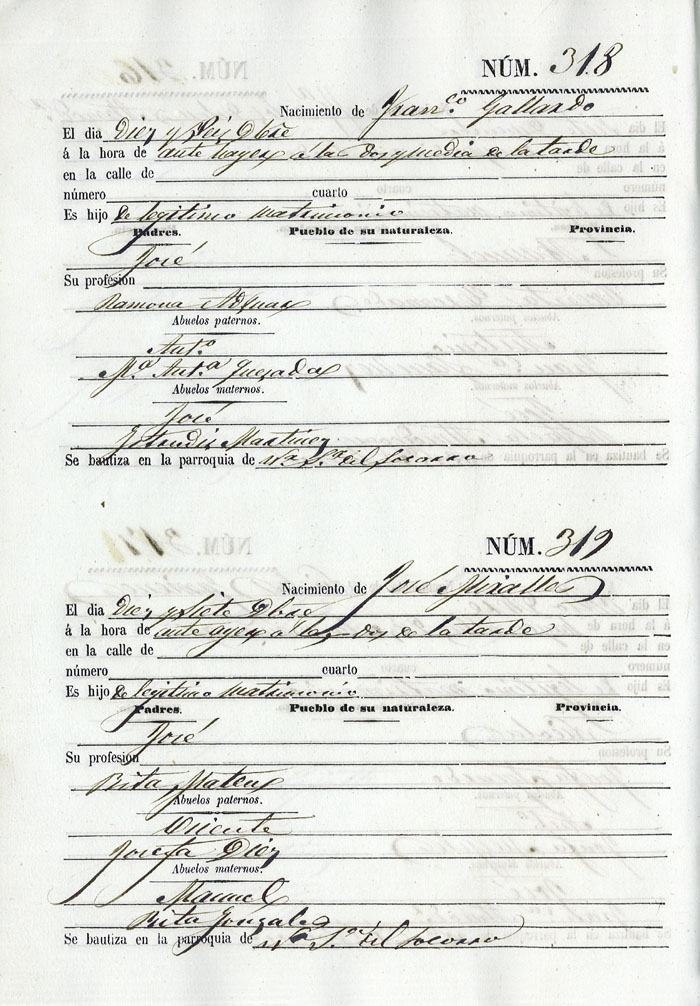 NÚM. 318
Nacimiento de Fran.co Gallardo
El dia Diez y Seis Dbre
á la hora de ante hayer á las dos y media de la tarde
en la calle de
número cuarto
Es hijo de legitimo matrimonio
Padres. Pueblo de su naturaleza. Provincia.
José
Su profesión
Ramona
Abuelos paternos.
Ant.o
M.a Ant.a Quezada
Abuelos maternos.
José
Martinez
Se bautiza en la parroquia de N.a S.ra del Socorro
NÚM. 319
Nacimiento de José Miralles
El dia Diez y Siete Dbre
á la hora de ante ayer á las dos de la tarde
en la calle de
número cuarto
Es hijo de legitimo matrimonio
Padres. Pueblo de su naturaleza. Provincia.
José
Su profesión
Rita Mateu
Abuelos paternos.
Vicente
Josefa Diez
Abuelos maternos.
Manuel
Rita Gonzales
Se bautiza en la parroquia de N.a S.a del Socorro